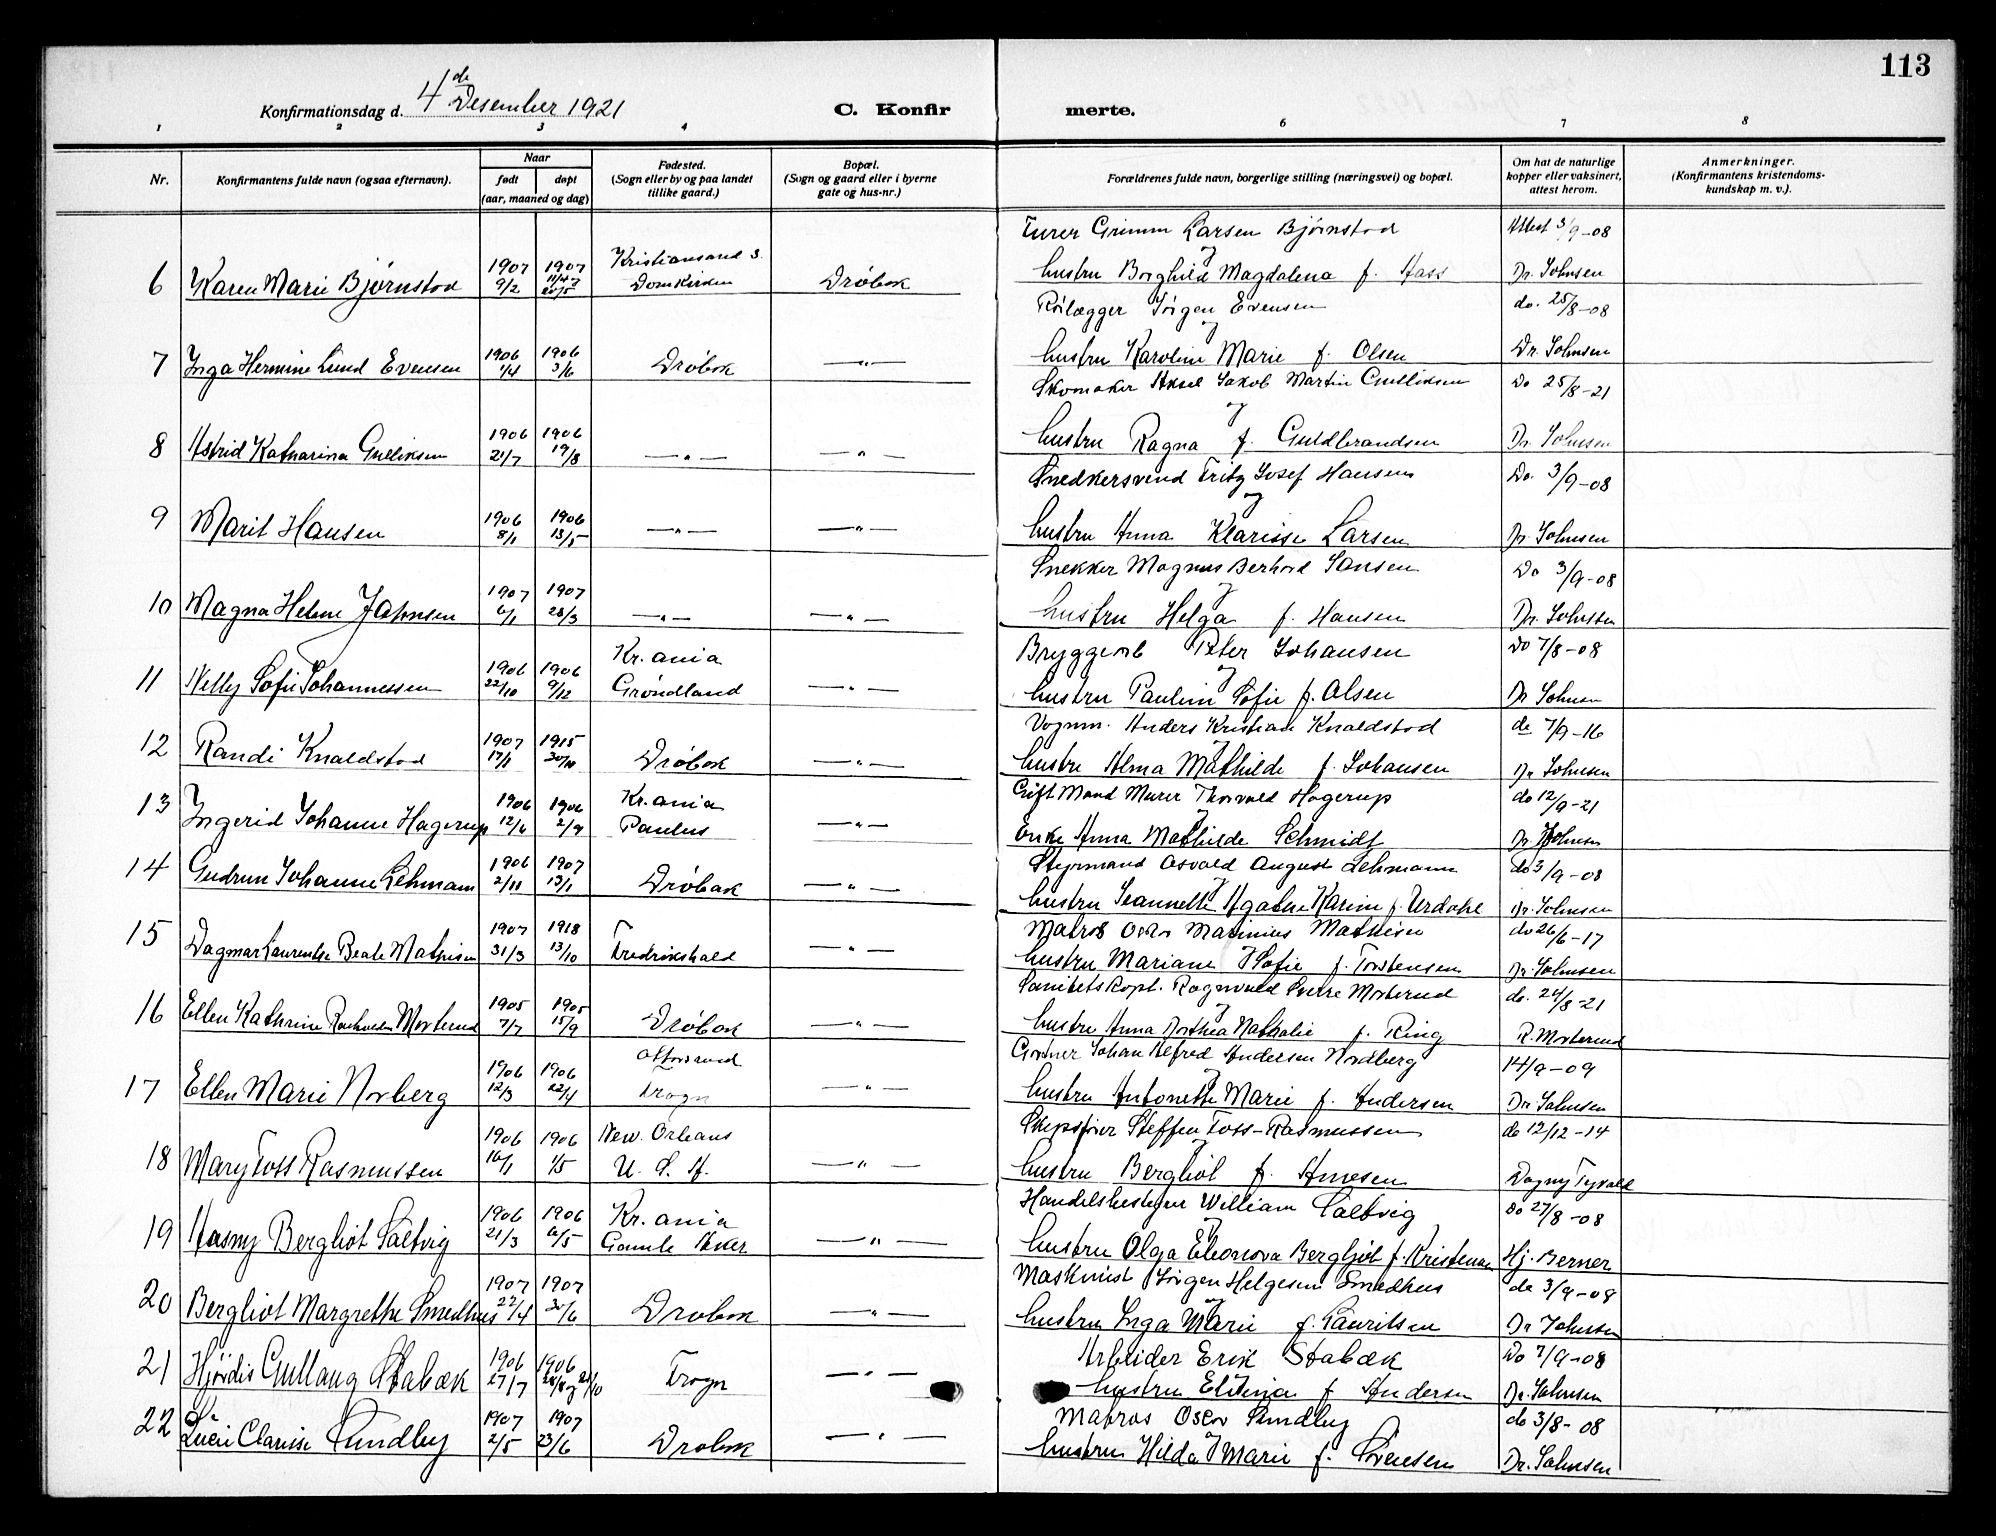 113
Konfirmationsdag d. 4de Desember 1921
C. Konfir merte.
1 2 3 4 6 7 8
Nr.
Konfirmantens fulde navn (ogsaa efternavn).
Naar
født døpt
(aar, maaned og dag)
Fødested.
(Sogn eller by og paa landet
tillike gaard.)
Bopæl.
(Sogn og gaard eller i byerne
gate og hus-nr.)
Forældrenes fulde navn, borgerlige stilling (næringsvei) og bopæl.
Om hat de naturlige
kopper eller vaksinert,
attest herom.
Anmerkninger.
(Konfirmantens kristendoms-
kundskap m. v.).
Grimm Larsen Bjørnstad Attest 3/9-08
1907 1907 Kristiansand S. og
6 Karen Marie Bjørnstad 9/2 Domkirken Drøbak hustru Borghild Magdalena f. Aass Dr. Johnsen
Jørgen Evensen do. 25/8-08
1906 1906 og
7 Inga Hermine Lund Evensen 1/4 3/6 Drøbak —"— hustru Karoline Marie f. Olsen Dr. Johnsen
Skomaker Aksel Jakob Martin Gulliksen Do 25/8-21
1906 1906 og
8 Astrid Katharina Gulliksen 21/7 19/8 —"— —"— hustru Ragna f. Guldbrandsen Dr. Johnsen
Snedkersvend Fritz Josef Hansen Do. 3/9-08
1906 1906 og
9 Marit Hansen 8/1 13/5 —"— —"— hustru Anna Klarisse Larsen Dr. Johnsen
Snekker Magnus Berhard Jansen Do 3/9-08
1907 1907 og
10 Magna Helene Jahnsen 6/1 28/3 —"— —"— hustru Helga f. Hansen Dr. Johnsen
Kr.ania Bryggearb Peter Johansen Do 7/8-08
1906 1906 og
11 Nelly Sofie Johannessen 22/10 9/12 Grøndland —"— hustru Pauline Sofie f. Olsen Dr Johnsen
Vognm. Anders Kristian Knaldstad do 7/9-16
1907 1915 og
12 Randi Knaldstad 17/1 30/10 Drøbak —"— hustru Alma Mathilde f. Johansen Dr Johnsen
1906 1906 Kr.ania Gift Mand Murer Thorvald Hagerup do 12/9-21
og
13 Ingerid Johanne Hagerup 12/6 2/9 Paulus —"— Enke Anna Mathilde Schmidt Dr Johnsen
1906 1907 Styrmand Osvald August Lehmann do 3/9-08
og
14 Gudrun Johanne Lehmann 2/11 13/1 Drøbak —"— hustru Jeannette Agathe Karine f. Urdahl Dr. Johnsen
1907 1918 Matros Oskar Marinius Mathisen do 26/6-17
15 Dagmar Laurentse Beate Mathisen 31/3 13/10 Fredrikshald —"— hustru Mariane Sofie f. Torstensen Dr. Johnsen
1905 1905 Sanitetskapt. Ragnvald Sverre Morterud do. 24/8-21
og
16 Ellen Kathrine Morterud 7/7 15/9 Drøbak —"— hustru Anna Dorthea Nathalie f. Ring R. Morterud
1906 1906 Gartner Johan Alfred Andersen Nordberg 14/9-09
og
17 Ellen Marie Norberg 12/3 22/4 Frogn —"— hustru Antonette Marie f. Andersen Dr. Johnsen
1906 1906 New. Orleans Skipsfører Steffen Foss-Rasmussen do 12/12-14
og
18 Mary Foss Rasmussen 16/1 1/5 U. S. A. —"— hustru Bergliot f. Arnesen Dagny Tyvald
1906 1906 Kr.ania Handelsbestyrer William Saltvig Do 27/8-08
og
19 Aasny Bergliot Saltvig 21/3 6/5 Gamle Aker —"— hustru Olga Eleonora Bergljot f. Kristensen Hj. Berner
1907 1907 Maskinist Jørgen Helgesen Smedhus do 3/9-08
og
20 Bergliot Margrethe Smedhus 22/4 30/6 Drøbak —"— hustru Inga Marie f. Lauritsen Dr Johnsen
1906 1906 Arbeider Erik Stabæk Do 7/9-08
21 Hjørdis Gullaug Stabæk 27/7 Frogn —"— hustru Elvina f Andersen Dr. Johnsen
1907 1907 Matros Oskar Sundby do 3/8-08
og
22 Lucie Clarise Sundby 2/5 23/6 Drøbak —"— hustru Hilda Marie f. Sørensen Dr. Johnsen